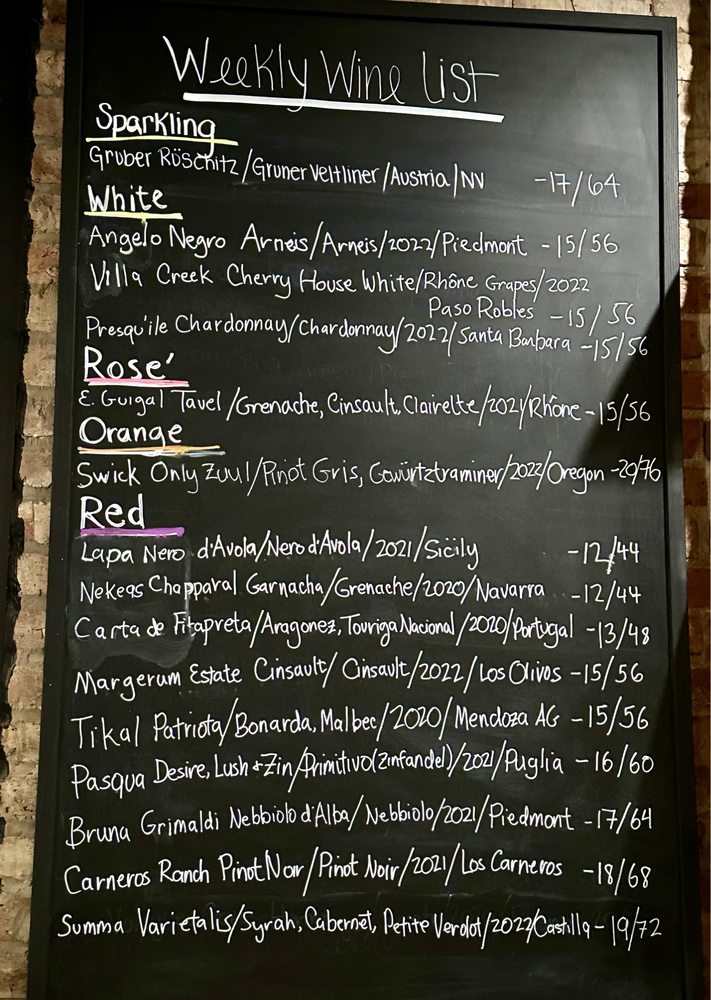 Weekly Wine List
Sparkling
Gruber Röschitz/Gruner Veltliner/Austria/NV -17/64
White
Angelo Negro Arneis/Arneis/2022/Piedmont -15/56
Villa Creek Cherry House White/Rhône Grapes/2022
Paso Robles -15/56
Presqu'ile Chardonnay/Chardonnay/2022/Santa Barbara -15/56
Rose'
E. Guigal Tavel/Grenache, Cinsault, Clairette/2021/Rhône -15/56
Orange
Swick Only Zuul/Pinot Gris, Gewürtztraminer/2022/Oregon -20/76
Red
Lapa Nero d'Avola/Nero d'Avola/2021/Sicily -12/44
Nekeas Chapparal Garnacha/Grenache/2020/Navarra -12/44
Carta de Fitapreta/Aragonez, Touriga Nacional/2020/Portugal -13/48
Margerum Estate Cinsault/Cinsault/2022/Los Olivos -15/56
Tikal Patriota/Bonarda, Malbec/2020/Mendoza AG -15/56
Pasqua Desire, Lush + Zin/Primitivo(Zinfandel)/2021/Puglia -16/60
Bruna Grimaldi Nebbiolo d'Alba/Nebbiolo/2021/Piedmont -17/64
Carneros Ranch Pinot Noir/Pinot Noir/2021/Los Carneros -18/68
Summa Varietalis/Syrah, Cabernet, Petite Verdot/2022/Castilla -19/72